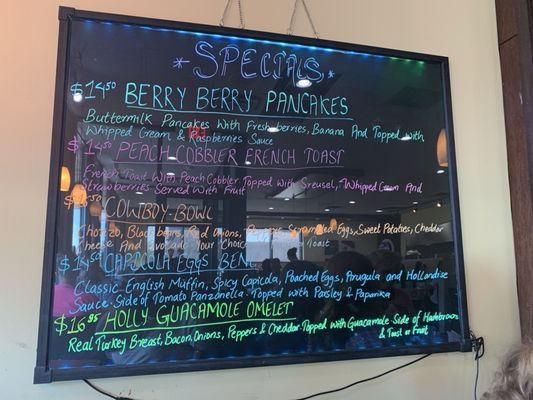 * SPECIALS *
$14.50 BERRY BERRY PANCAKES
Buttermilk Pancakes With Fresh berries, Banana And Topped with
Whipped Cream & Raspberries Sauce
$14.50 PEACH COBBLER FRENCH TOAST
French Toast With Peach Cobbler Topped with Sreusel, Whipped Cream And
Strawberries Served With Fruit
COWBOY-BOWL
Chorizo, Black beans, Red Onions, Peppers, Scrambled Eggs, Sweet Potatoes, Cheddar
Cheese And Avocado Your Choice Toast
CAPICOLA EGGS BENE
Classic English Muffin, Spicy Capicola, Poached Eggs, Arugula and Hollandise
Sauce. Side of Tomato Panzanella. Topped with Parsley & Papanika
$16.95 HOLLY GUACAMOLE OMELET
Real Turkey Breast, Bacon, Onions, Peppers & Cheddar. Topped with Guacamole. Side of Hashbrowns
& Toast or Fruit